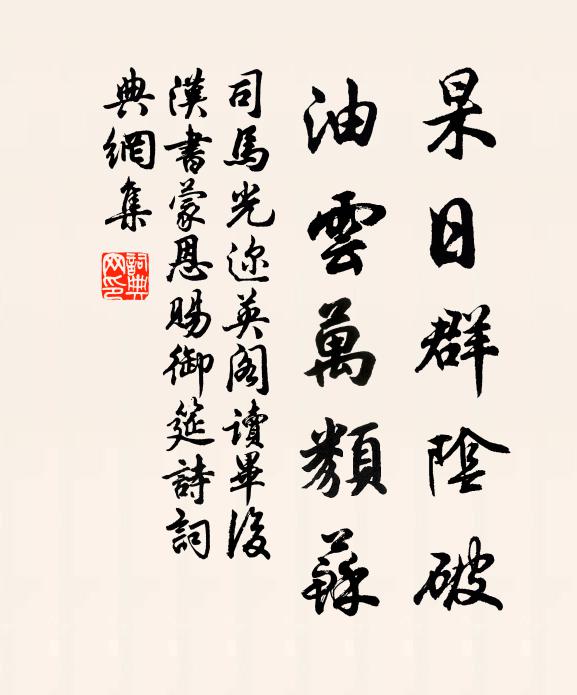 杲日群陰破
油雲萬類蘇
司馬光迩英阁讀畢後
漢書蒙恩賜御筵詩詞
典網集
詞典
网印